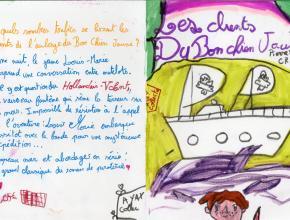 quels sombres trafics se livrent les
clients de l'auberge du Bon Chien Jaune?
Une nuit, le jeune Louis-Marie
surprend une conversation entre matelots.
Il y est question du Hollandais-Volant,
vaisseau fantôme qui sème la terreur sur
les mers. Impossible de résister à l'appel
de l'aventure: Louis-Marie embarque
aussitôt avec la bande pour une mystérieuse
expédition...
Drapeau noir et abordages en série:
un grand classique du roman de piraterie.
Les clients
Du Bon chien Jaune
Pierre